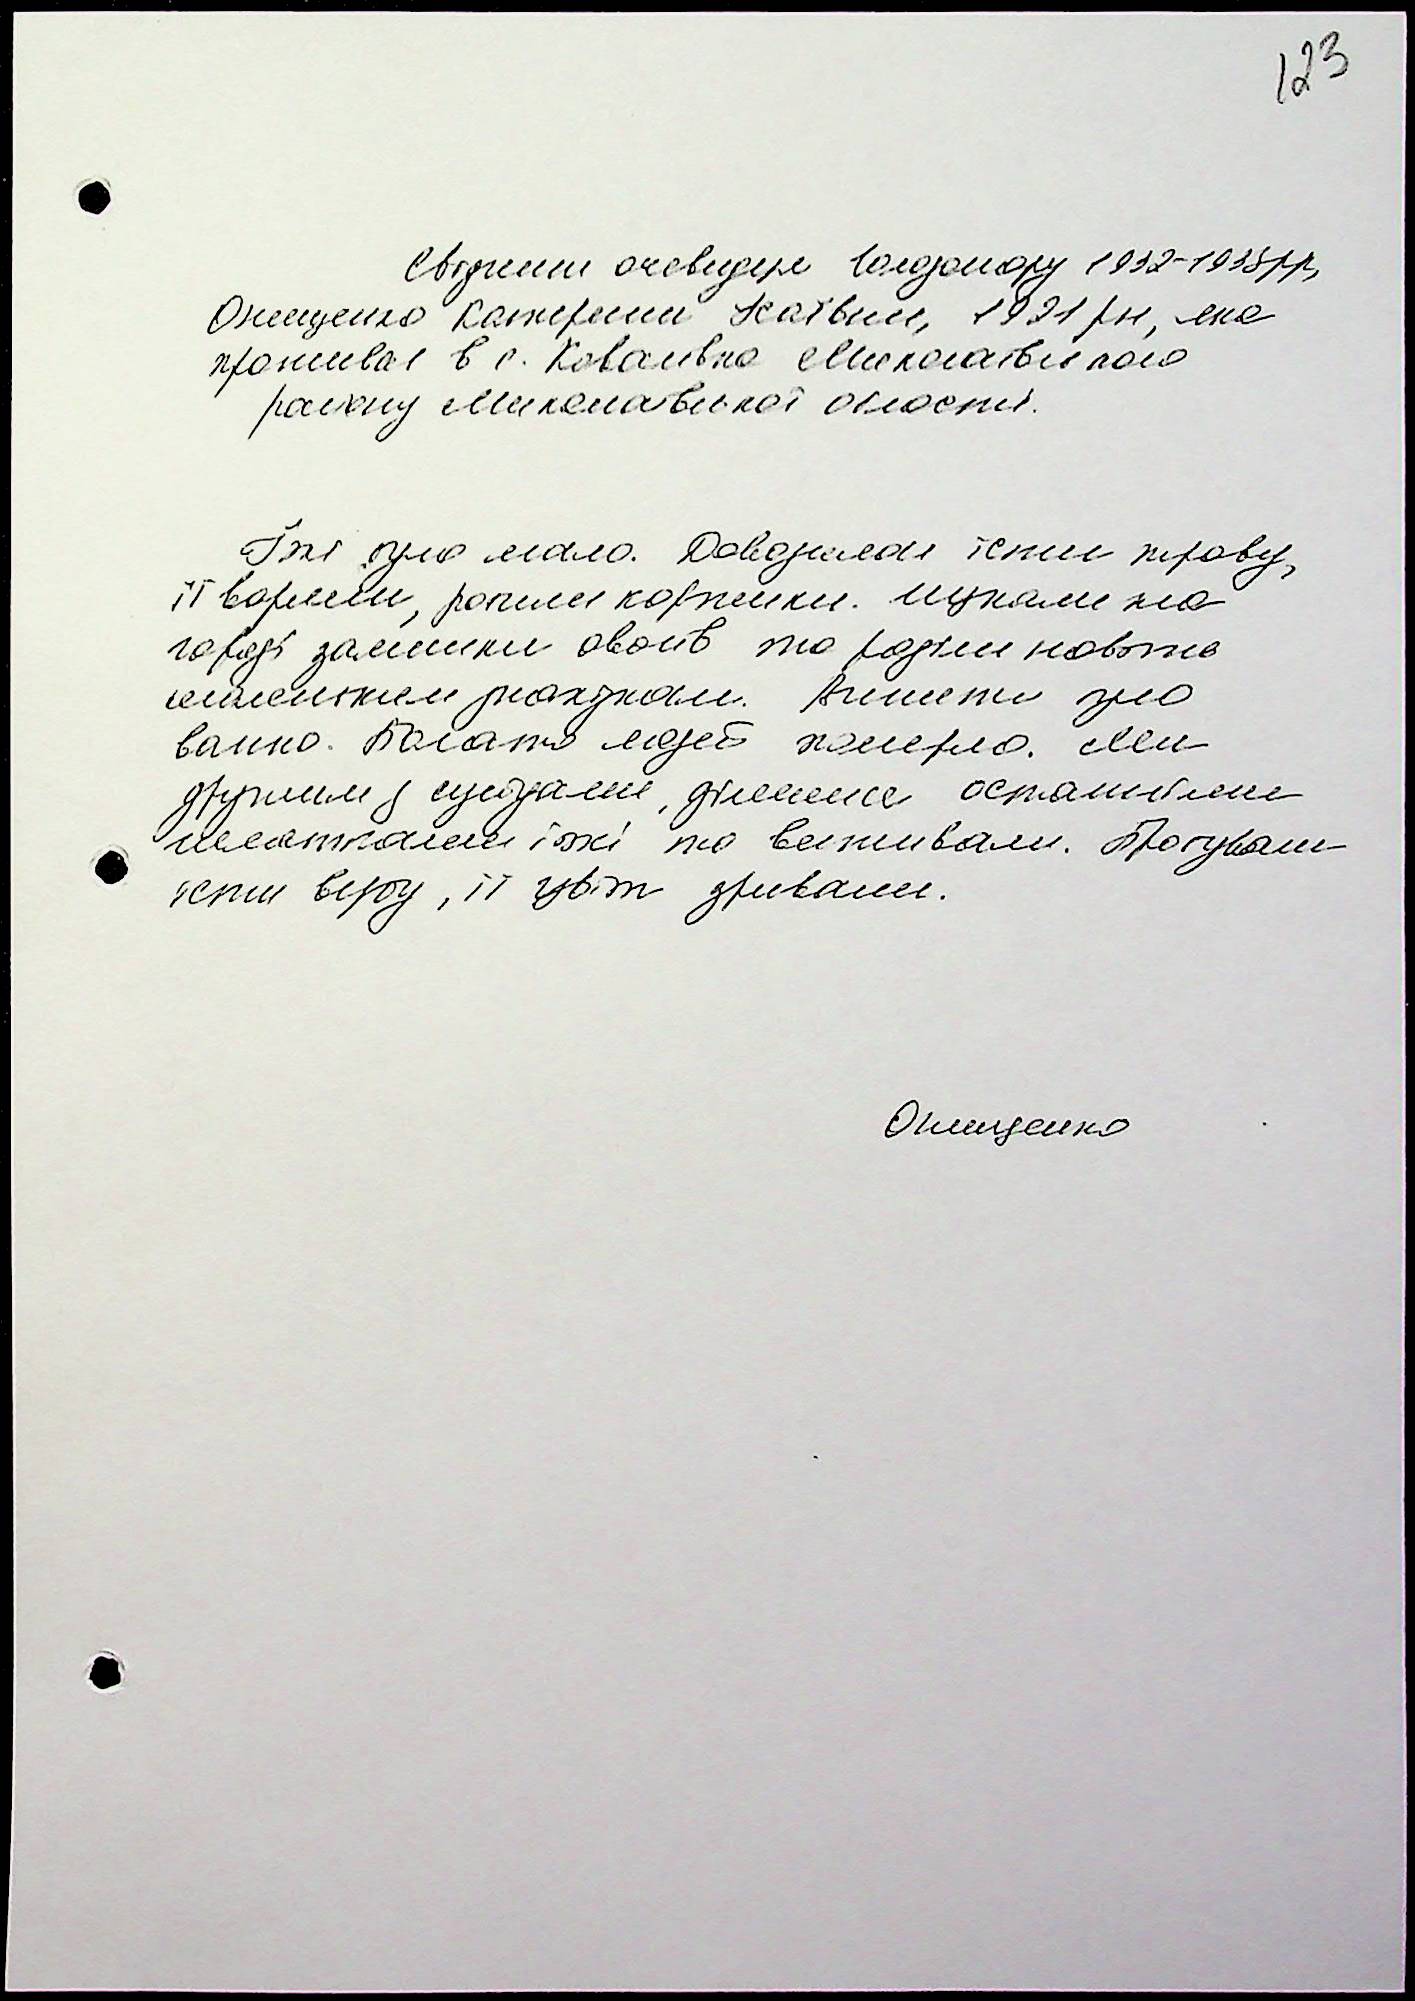 123
Свідчення очевидця Голодомору 1932-1933 рр,
Онищенко Катерини Матвіївни, 1921 рн, яка
проживає в с. Ковалівка Миколаївського
району Миколаївської області.
Їжі було мало. Доводилося їсти траву,
її варили, робили коржики. Шукали на
городі залишки овочів та раділи навіть
маленьким знахідкам. Вижити було
важко. Багато людей померло. Ми
дружили з сусідами, ділилися останніми
шматками їжі та виживали. Пробували
їсти вербу, її цвіт зривали.
Онищенко